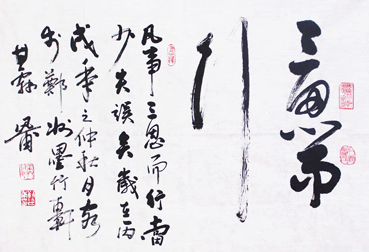 三思而
行
凡事三思而行當
少失誤矣歲在丙
戌年之仲秋月
於鄭州墨行軒